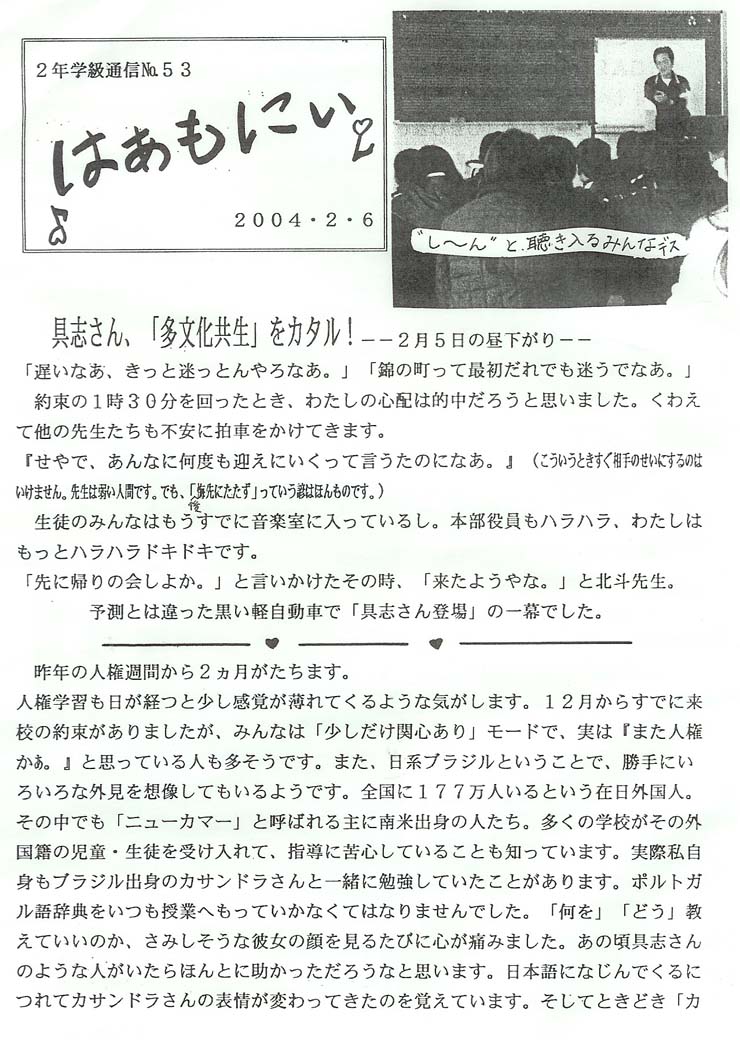 2年学級通信№53
はあもにい
2004・2・6
“し～ん”と、聴き入るみんなデス
具志さん、「多文化共生」をカタル！－－2月5日の昼下がり－－
「遅いなあ、きっと迷っとんやろなあ。」「錦の町って最初だれでも迷うでなあ。」
　約束の1時30分を回ったとき、わたしの心配は的中だろうと思いました。くわえ
て他の先生たちも不安に拍車をかけてきます。
『せやで、あんなに何度も迎えにいくって言うたのになあ。』（こういうときすぐ相手のせいにするのは
いけません。先生は弱い人間です。でも、「後悔先にたたず」っていう諺はほんものです。）
　生徒のみんなはもうすでに音楽室に入っているし。本部役員もハラハラ、わたしは
もっとハラハラドキドキです。
「先に帰りの会しよか。」と言いかけたその時、「来たようやな。」と北斗先生。
予測とは違った黒い軽自動車で「具志さん登場」の一幕でした。
　昨年の人権週間から2ヵ月がたちます。
人権学習も日が経つと少し感覚が薄れてくるような気がします。12月からすでに来
校の約束がありましたが、みんなは「少しだけ関心あり」モードで、実は『また人権
かぁ。』と思っている人も多そうです。また、日系ブラジルということで、勝手にい
ろいろな外見を想像してもいるようです。全国に177万人いるという在日外国人。
その中でも「ニューカマー」と呼ばれる主に南米出身の人たち。多くの学校がその外
国籍の児童・生徒を受け入れて、指導に苦心していることも知っています。実際私自
身もブラジル出身のカサンドラさんと一緒に勉強していたことがあります。ポルトガ
ル語辞典をいつも授業へもっていかなくてはなりませんでした。「何を」「どう」教
えていいのか、さみしそうな彼女の顔を見るたびに心が痛みました。あの頃具志さん
のような人がいたらほんとに助かっただろうなと思います。日本語になじんでくるに
つれてカサンドラさんの表情が変わってきたのを覚えています。そしてときどき「カ